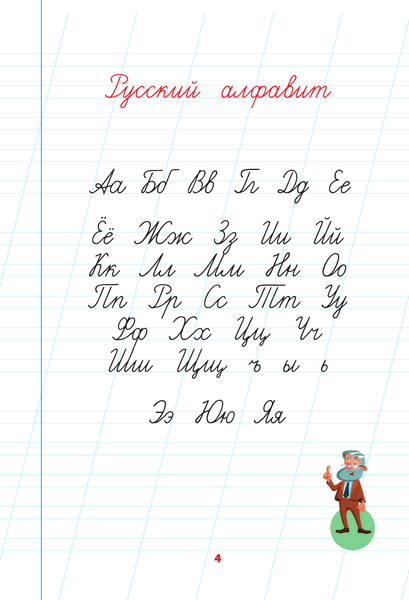 Русский алфавит
Аа Бб Вв Гг Дд Ее
Ёё Жж Зз Ии Йй
Кк Лл Мм Нн Оо
Пп Рр Сс Тт Уу
Фф Хх Цц Чч
Шш Щщ ъ ы ь
Ээ Юю Яя
4